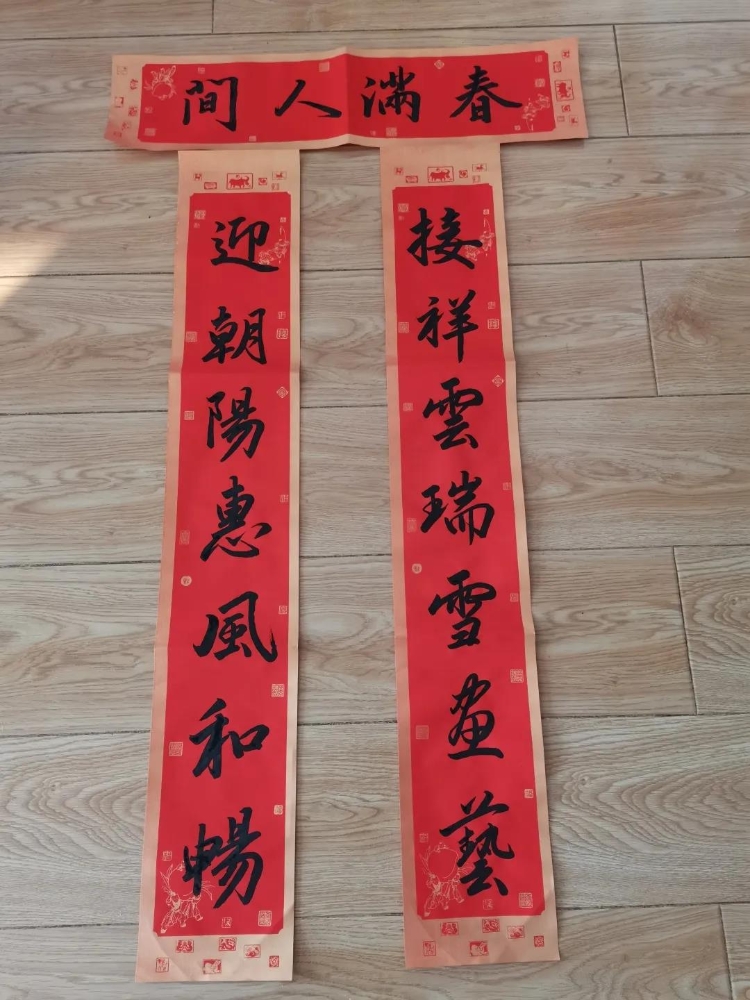 春滿人間
接祥雲瑞雪畫藝
迎朝陽惠風和暢